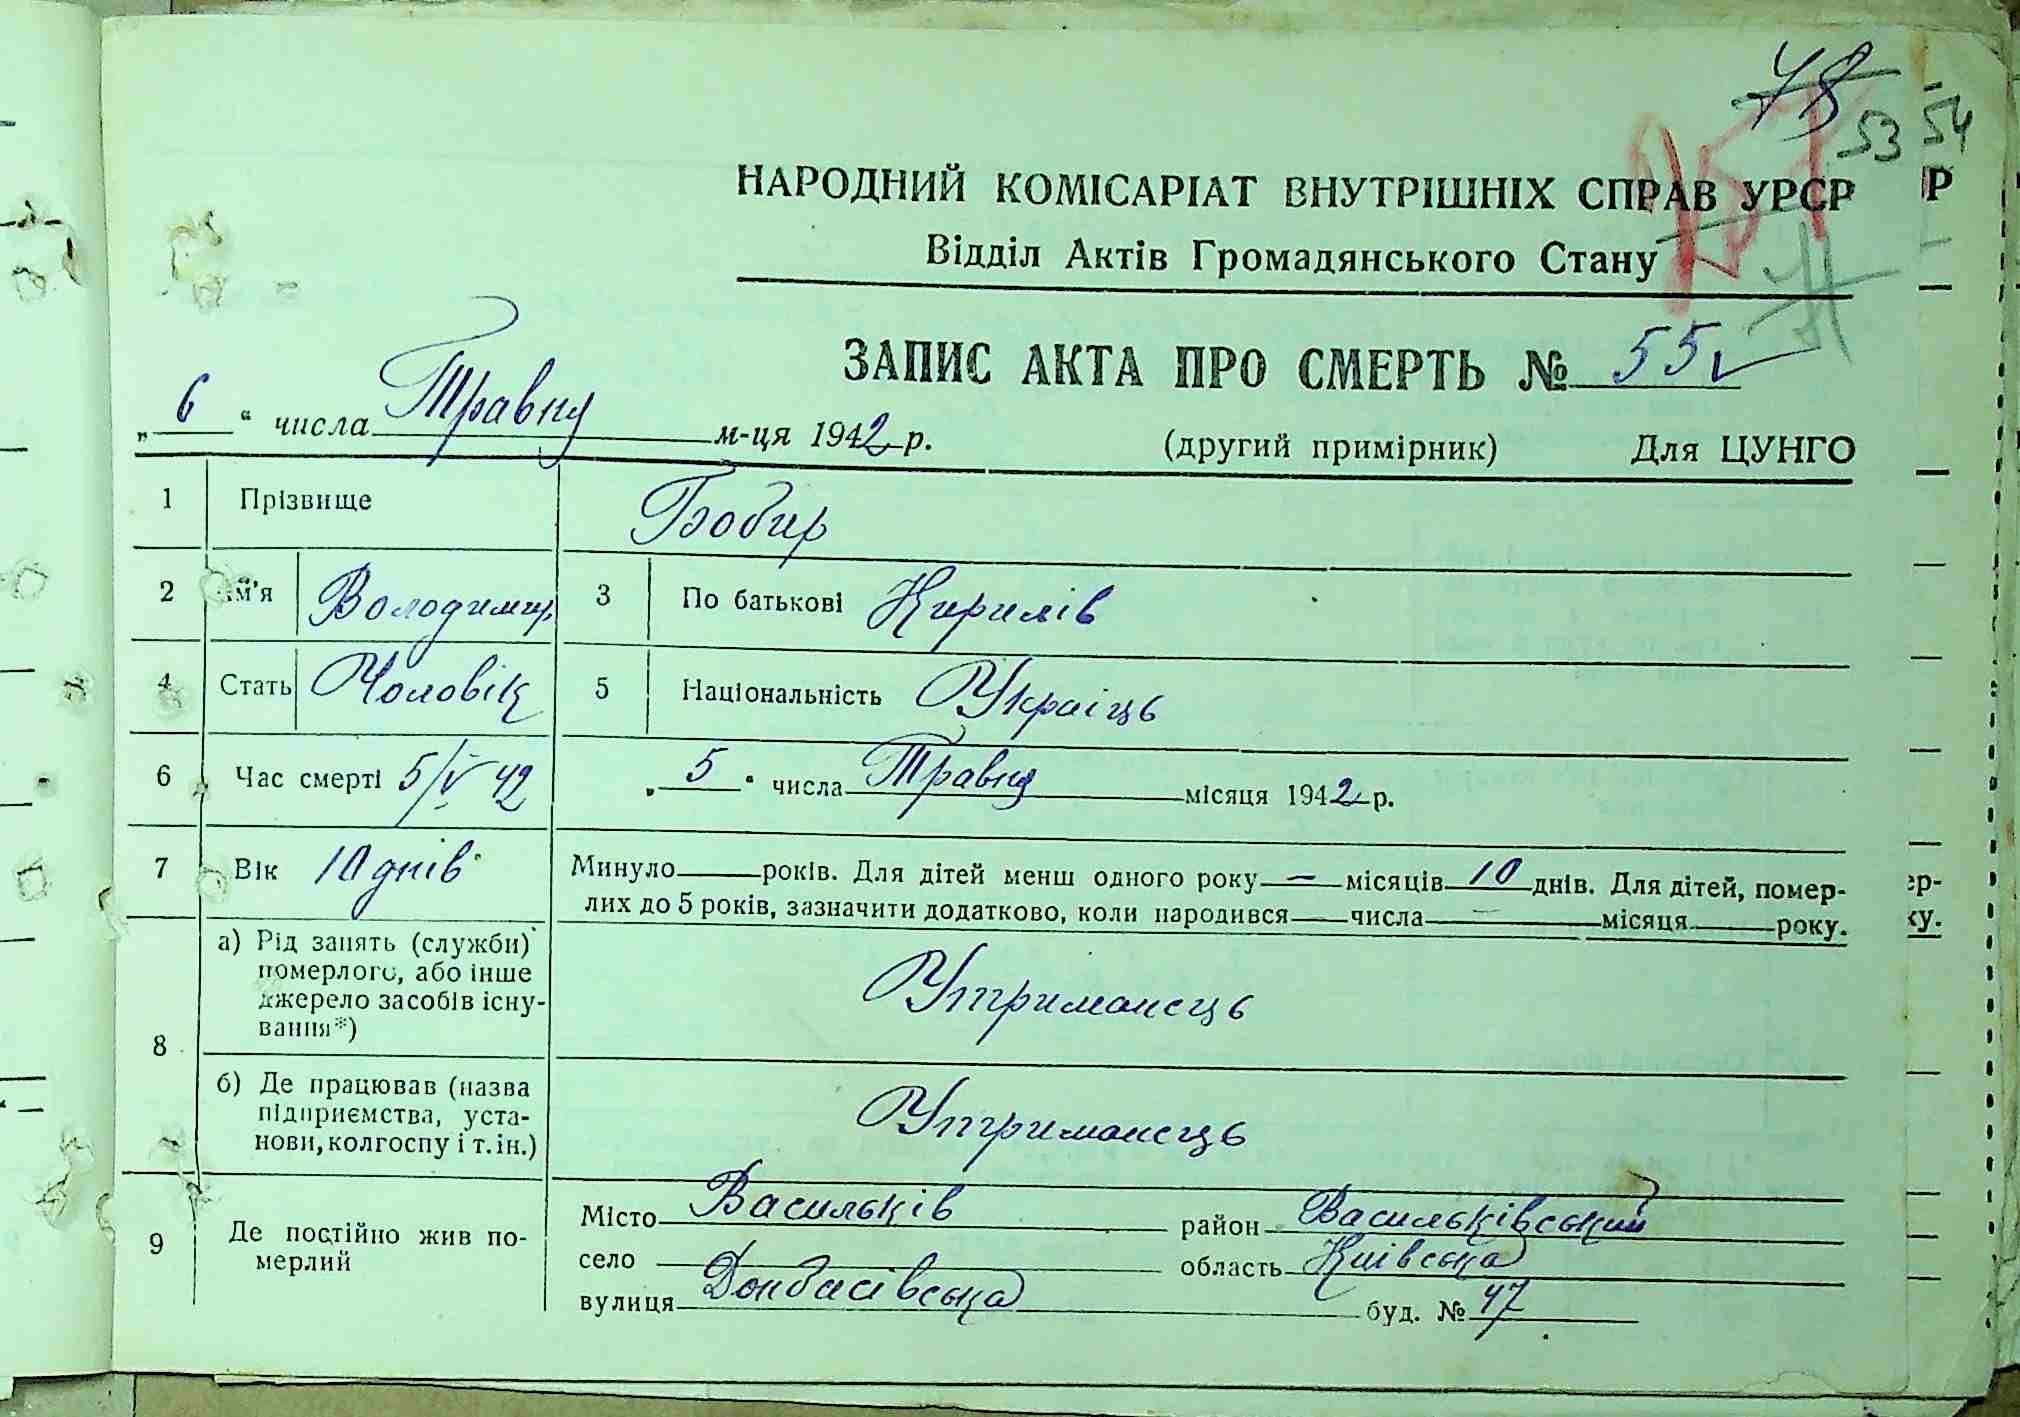 48
53 54
157
НАРОДНИЙ КОМІСАРІАТ ВНУТРІШНІХ СПРАВ УРСР
Р
Відділ Актів Громадянського Стану
ЗАПИС АКТА ПРО СМЕРТЬ № 55
„ 6 “ числа Травня м-ця 1942 р. (другий примірник) Для ЦУНГО
1 Прізвище Бобир
2 Ім'я Володимир 3 По батькові Кирилів
4 Стать Чоловік 5 Національність Украіць
6 Час смерті 5/V 42 „ 5 “ числа Травня місяця 1942 р.
7 Вік 10 днів Минуло роках. Для дітей менш одного року — місяців 10 днів. Для дітей, помер-
лих до 5 років, зазначити додатково, коли народився числа — місяця року.
ер-
ку.
8 а) Рід занять (служби) померлого, або інше джерело засобів існу-
вання*) Утриманець
б) Де працював (назва підприємства, уста-
нови, колгоспу і т. ін.) Утриманець
9 Де постійно жив по-
мерлий
Місто Васильків район Васильківський
село область Київська
вулиця Донбасівська буд. № 47